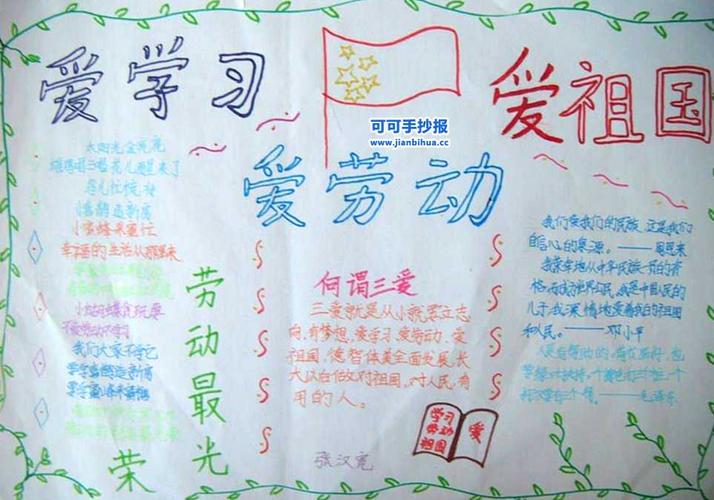 爱学习
爱祖国
可可手抄报
www.jianbihua.cc
爱劳动
太阳光金亮亮
雄鸡唱三唱花儿醒来了
鸟儿忙梳妆
小喜鹊造新房
小蜜蜂采蜜忙
幸福的生活从哪里来
小蝴蝶贪玩耍
不爱劳动不学习
我们大家不学它
要学喜鹊造新房
要学蜜蜂采蜜糖
劳动最光荣
何谓三爱
三爱就是从小就要立志
向,有梦想,爱学习,爱劳动、爱
祖国,德智体美全面发展,长
大以后做对祖国,对人民,有
用的人。
学习
劳动
祖国
爱
张汉宽
我们爱我们的民族,这是我们
自信心的泉源。——周恩来
我荣幸地从中华民族一员的资
格,而成为世界公民。我是中国人民的
儿子,我深情地爱着我的祖国
和人民。——邓小平